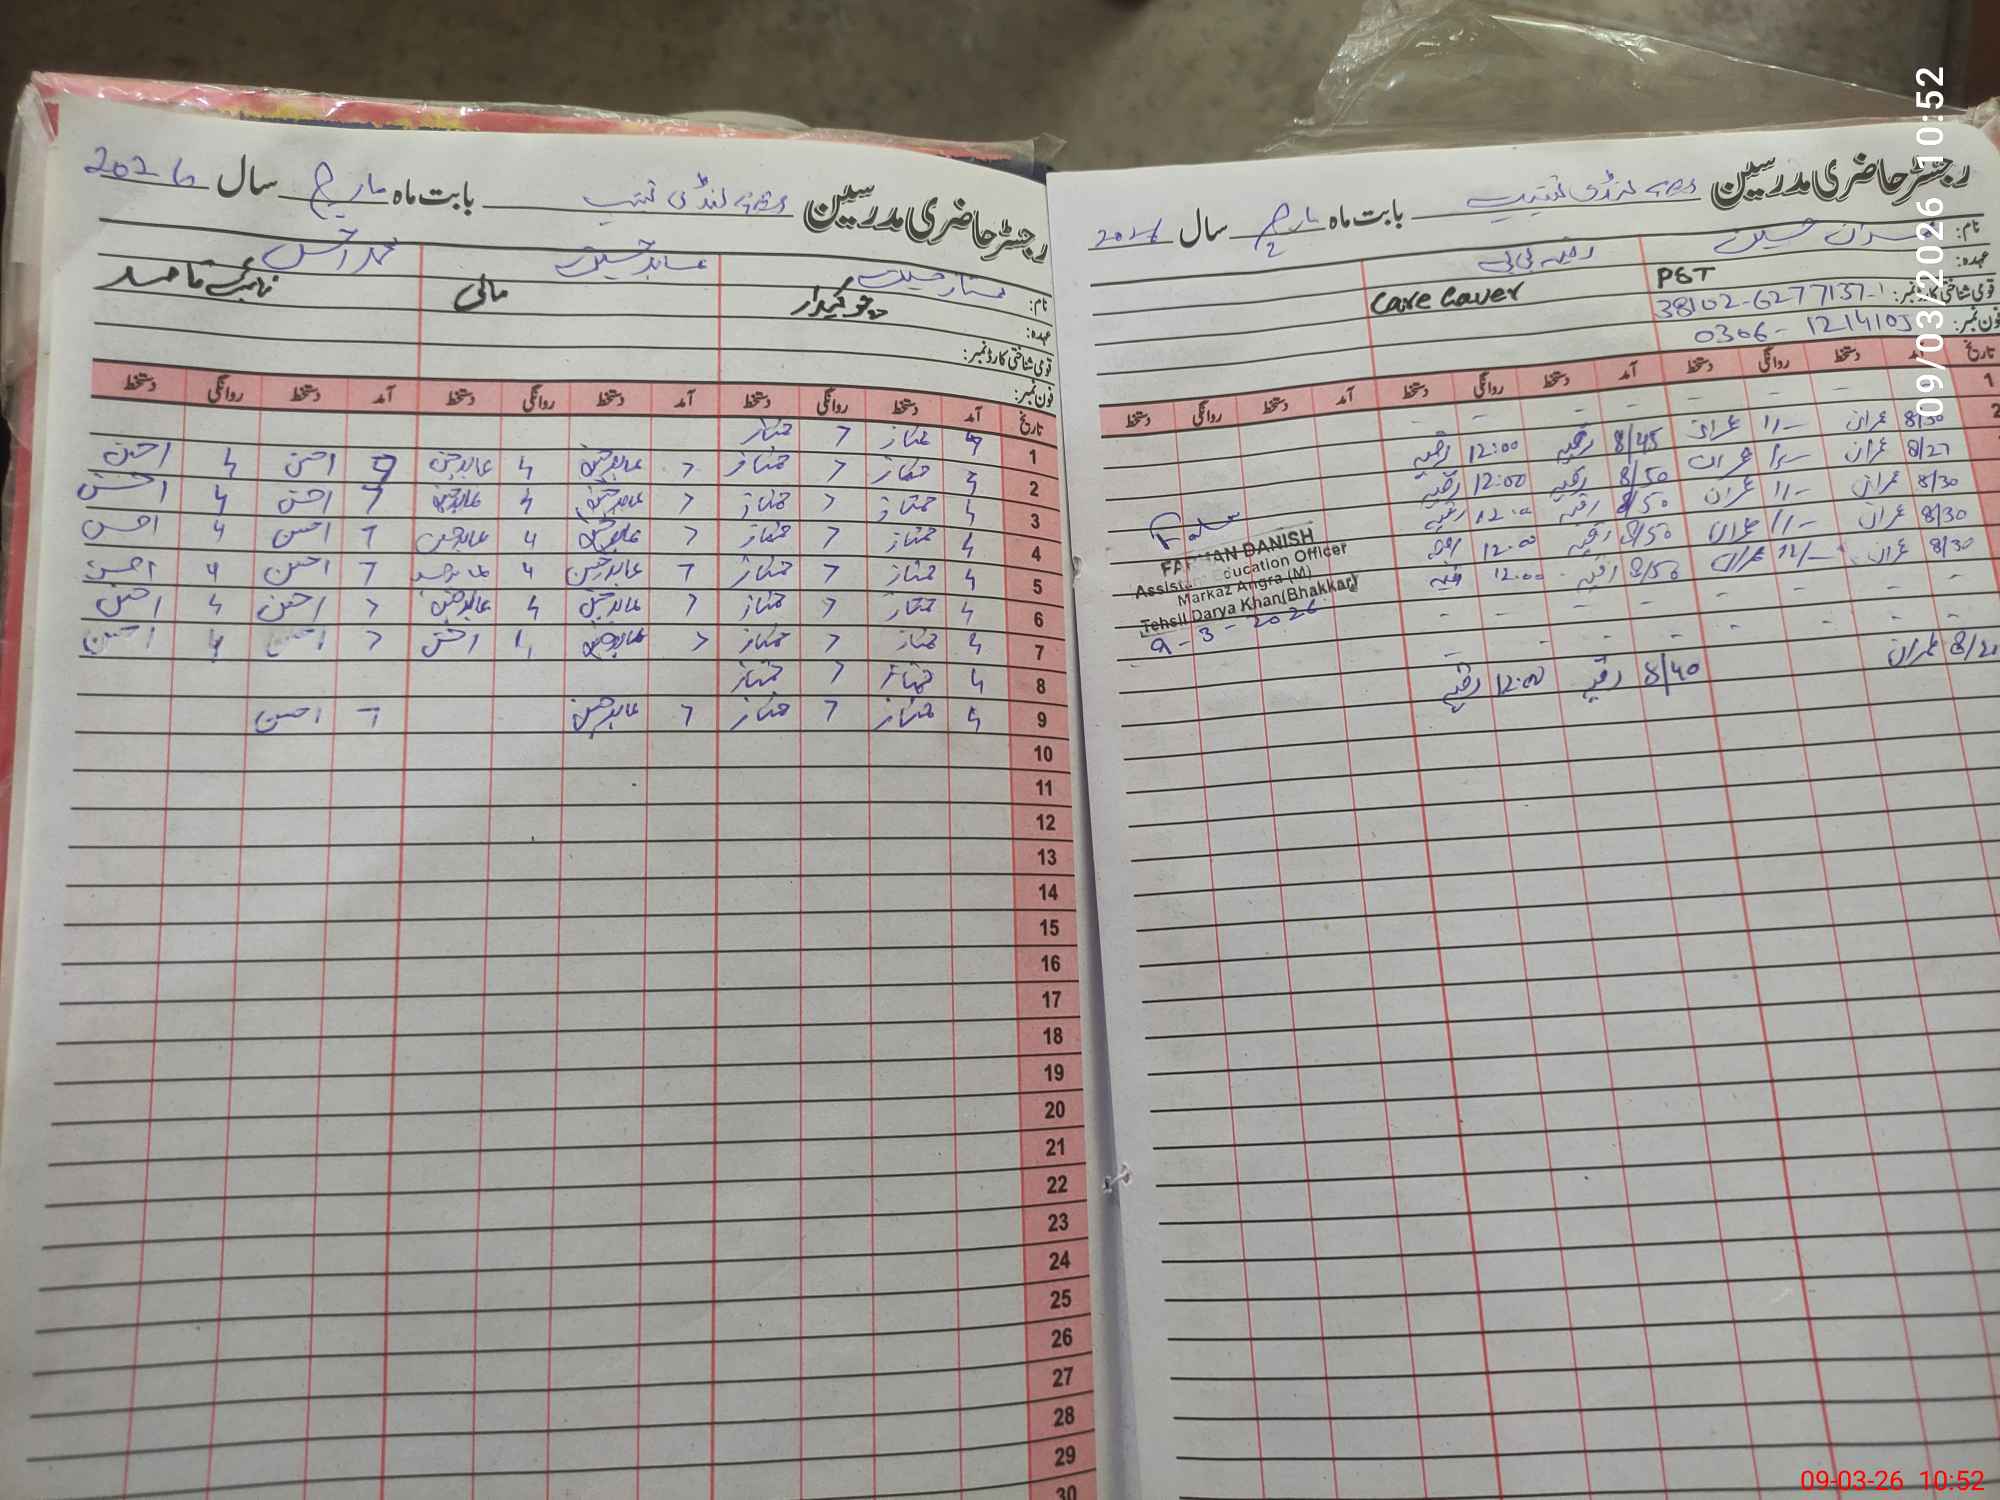 رجسٹر حاضری مدرسین GPS لنڈی بابت ماہ مارچ سال 2026
نام: ممتاز حسین عابد حسین محمد احسن
عہدہ: چوکیدار مالی نائب قاصد
قومی شناختی کارڈ نمبر:
فون نمبر:
تاریخ آمد دستخط روانگی دستخط آمد دستخط روانگی دستخط آمد دستخط روانگی دستخط
1 ممتاز 7 ممتاز
2 4 ممتاز 7 ممتاز 7 عابد حسین 4 عابد حسین 7 احسن 4 احسن
3 4 ممتاز 7 ممتاز 7 عابد حسین 4 عابد حسین 7 احسن 4 احسن
4 4 ممتاز 7 ممتاز 7 عابد حسین 4 عابد حسین 7 احسن 4 احسن
5 4 ممتاز 7 ممتاز 7 عابد حسین 4 عابد حسین 7 احسن 4 احسن
6 4 ممتاز 7 ممتاز 7 عابد حسین 4 عابد حسین 7 احسن 4 احسن
7 4 ممتاز 7 ممتاز 7 عابد حسین 4 احسن 7 احسن 4 احسن
8 4 ممتاز 7 ممتاز
9 4 ممتاز 7 ممتاز 7 عابد حسین 7 احسن
10
11
12
13
14
15
16
17
18
19
20
21
22
23
24
25
26
27
28
29
30
رجسٹر حاضری مدرسین GPS لنڈی بابت ماہ مارچ سال 2026
نام: عمران حسین
عہدہ: PST Care Caver
قومی شناختی کارڈ نمبر: 38102-6277137-1
فون نمبر: 0306-121410
تاریخ آمد دستخط روانگی دستخط آمد دستخط روانگی دستخط آمد دستخط روانگی دستخط
1 - - - - - -
2 8/30 عمران 11/- عمران 8/45 رقیہ 12:00 رقیہ
8/27 عمران عمران 8/50 رقیہ 12:00 رقیہ
8/30 عمران 11/- عمران 8/50 رقیہ 12:00 رقیہ
8/30 عمران 11/- عمران 8/50 رقیہ 12:00 رقیہ
8/30 عمران 12/- عمران 8/50 رقیہ 12:00 رقیہ
- - - - - - - -
- - - - - - - -
عمران 8/40 رقیہ 12:00 رقیہ
DANISH
Assistant Education Officer
Markaz Angra (M)
Tehsil Darya Khan(Bhakkar)
9-3-2026
09/03/2026 10:52
09-03-26 10:52